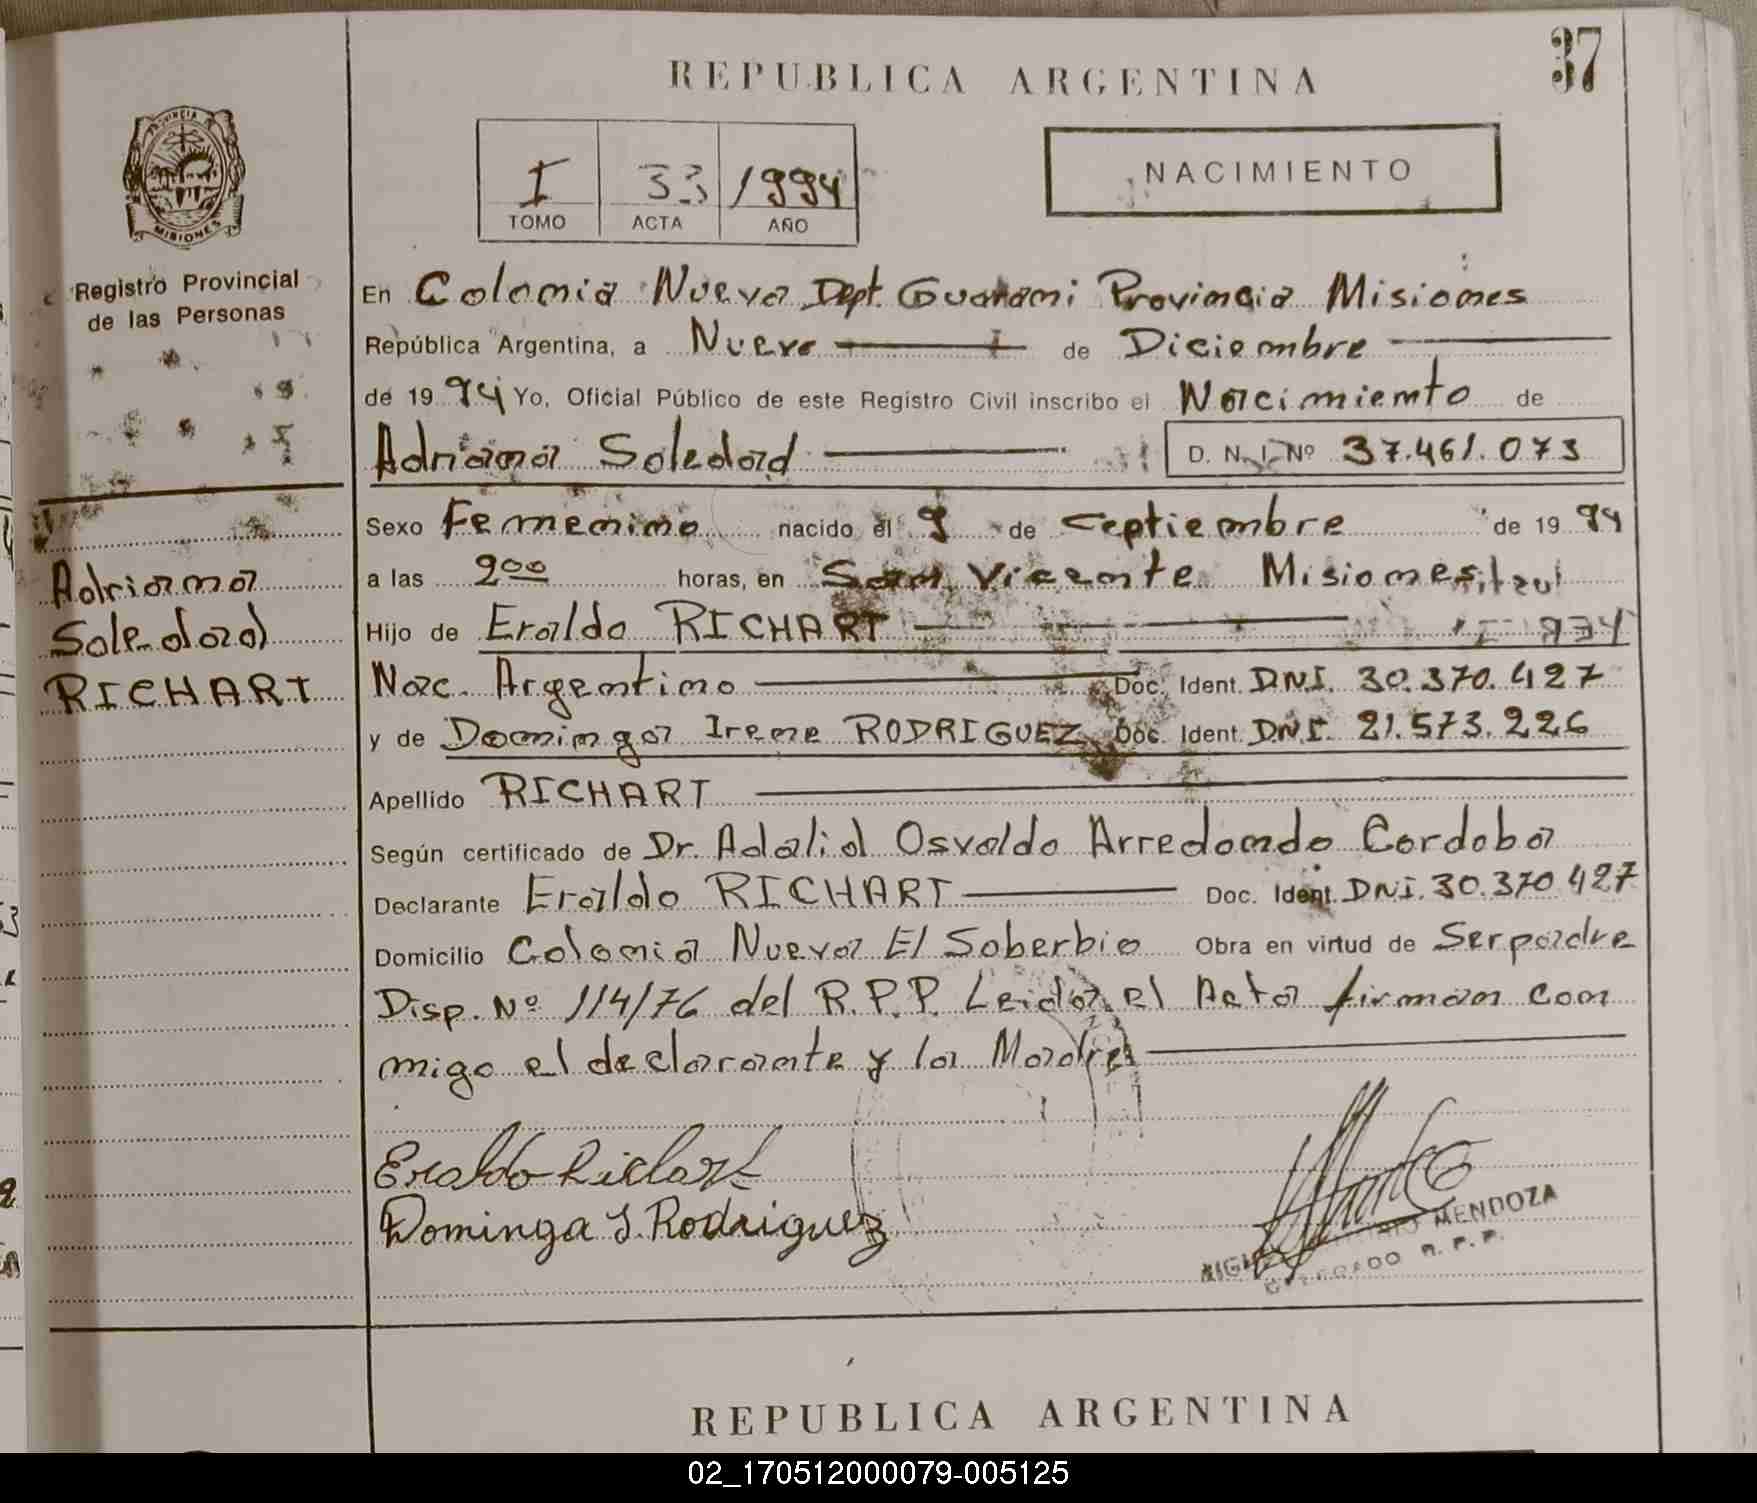 37
REPUBLICA ARGENTINA
PROVINCIA DE
MISIONES
I 33 1994
TOMO ACTA AÑO
NACIMIENTO
Registro Provincial
de las Personas
En Colonia Nueva Dept. Guarani Provincia Misiones
República Argentina, a Nueve de Diciembre
de 19 94 Yo, Oficial Público de este Registro Civil inscribo el Nacimiento de
Adriana Soledad D. N. I. Nº 37.461.073
Sexo Femenino nacido el 9 de Septiembre de 19 94
a las 2⁰⁰ horas, en San Vicente Misiones
Hijo de Eraldo RICHART
Nac. Argentino Doc. Ident. DNI. 30.370.427
y de Dominga Irene RODRIGUEZ Doc. Ident. DNI. 21.573.226
Apellido RICHART
Según certificado de Dr. Adalid Osvaldo Arredondo Cordoba
Declarante Eraldo RICHART Doc. Ident. DNI. 30.370.427
Domicilio Colonia Nueva El Soberbio Obra en virtud de Serpadre
Disp. Nº 114/76 del R.P.P. Leida el Acta firman con
migo el declarante y la Madre
Adriana
Soledad
RICHART
Eraldo Richart
Dominga I. Rodriguez
MENDOZA
R. P. P.
REPUBLICA ARGENTINA
02_170512000079-005125